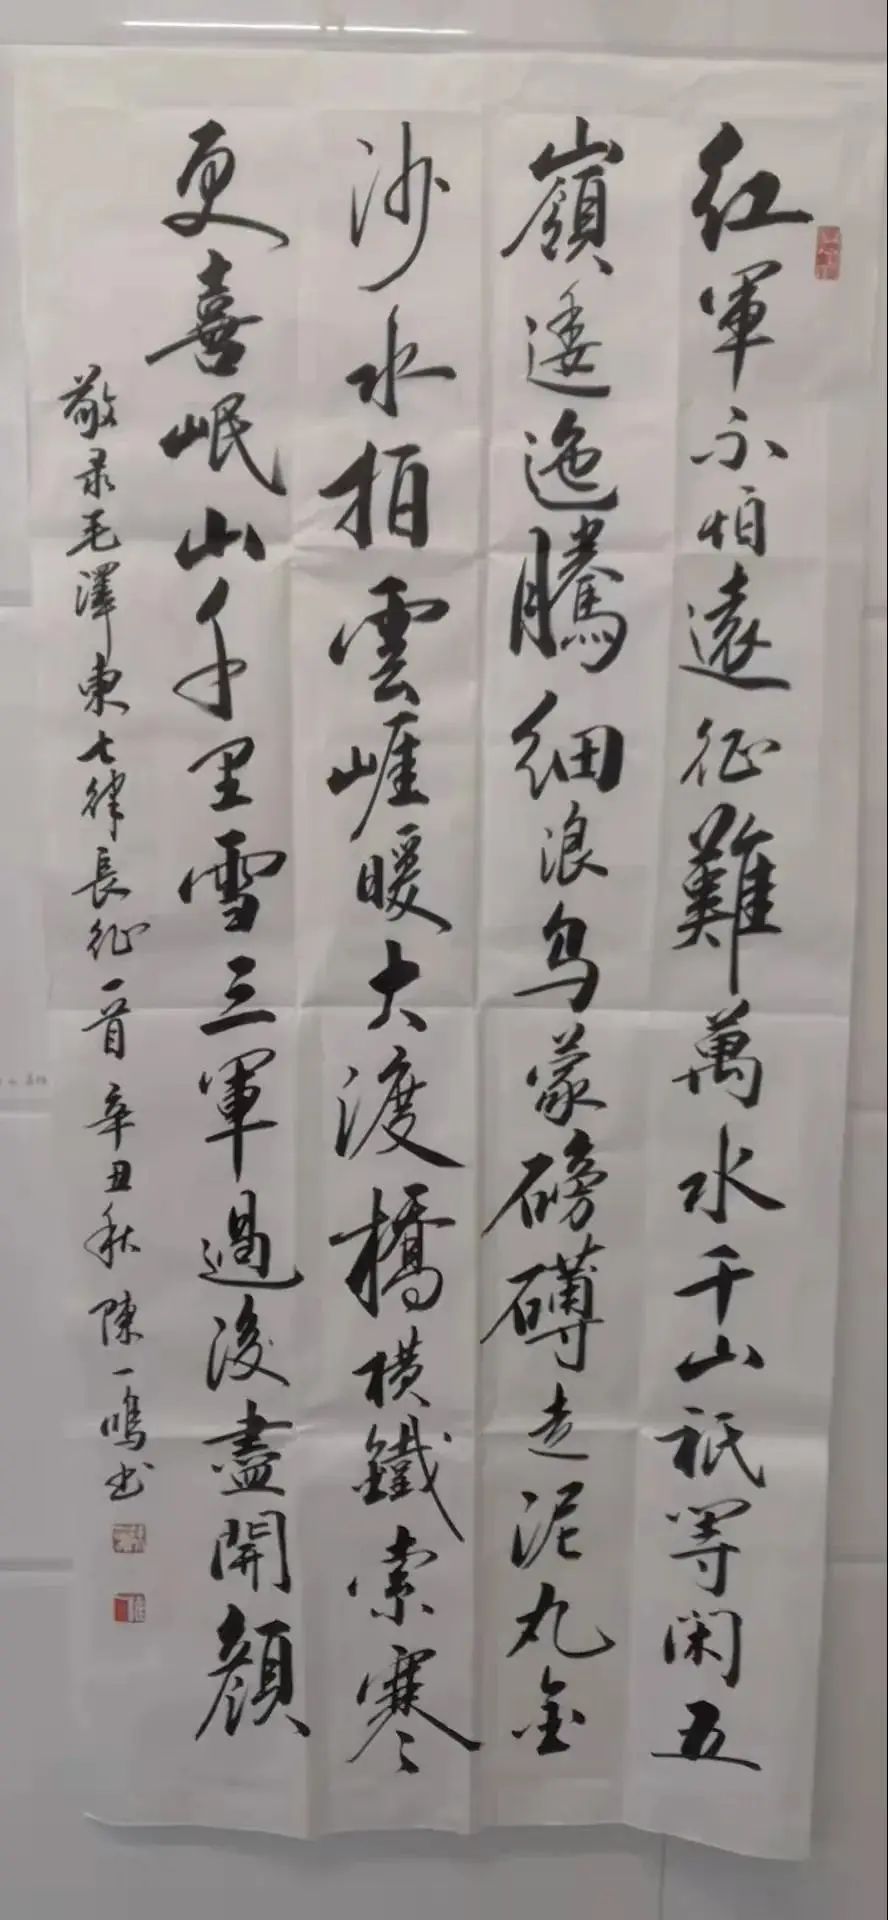 紅軍不怕遠征難萬水千山祇等閑五
嶺逶迤騰細浪烏蒙磅礴走泥丸金
沙水拍雲崕暖大渡橋橫鐵索寒
更喜岷山千里雪三軍過後盡開顏
敬录毛澤東七律長征一首 辛丑秋 陳一鳴书